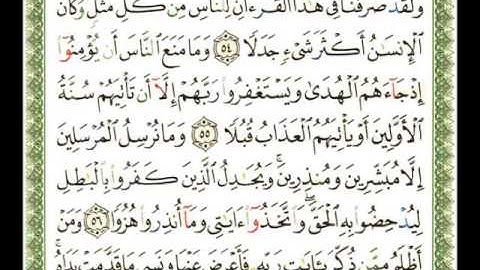 وَلَقَدْ صَرَّفْنَا فِى هَٰذَا ٱلْقُرْءَانِ لِلنَّاسِ مِن كُلِّ مَثَلٍ وَكَانَ
ٱلْإِنسَٰنُ أَكْثَرَ شَىْءٍ جَدَلًا ٥٤ وَمَا مَنَعَ ٱلنَّاسَ أَن يُؤْمِنُوٓا۟
إِذْ جَآءَهُمُ ٱلْهُدَىٰ وَيَسْتَغْفِرُوا۟ رَبَّهُمْ إِلَّآ أَن تَأْتِيَهُمْ سُنَّةُ
ٱلْأَوَّلِينَ أَوْ يَأْتِيَهُمُ ٱلْعَذَابُ قُبُلًا ٥٥ وَمَا نُرْسِلُ ٱلْمُرْسَلِينَ
إِلَّا مُبَشِّرِينَ وَمُنذِرِينَ ۚ وَيُجَٰدِلُ ٱلَّذِينَ كَفَرُوا۟ بِٱلْبَٰطِلِ
لِيُدْحِضُوا۟ بِهِ ٱلْحَقَّ ۖ وَٱتَّخَذُوٓا۟ ءَايَٰتِى وَمَآ أُنذِرُوا۟ هُزُوًا ٥٦ وَمَنْ
أَظْلَمُ مِمَّن ذُكِّرَ بِـَٔايَٰتِ رَبِّهِۦ فَأَعْرَضَ عَنْهَا وَنَسِىَ مَا قَدَّمَتْ يَدَاهُ ۚ